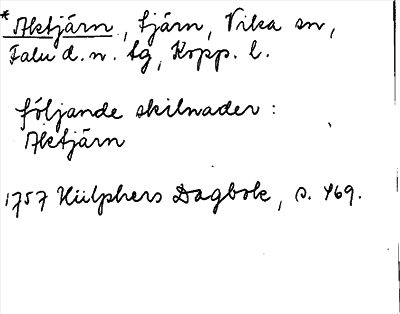 * Aktjärn, tjärn, Vika sn,
Falu d.n. tg, Kopp. l.
följande skilnader:
Aktjärn
1757 Hülphers Dagbok, s. 469.